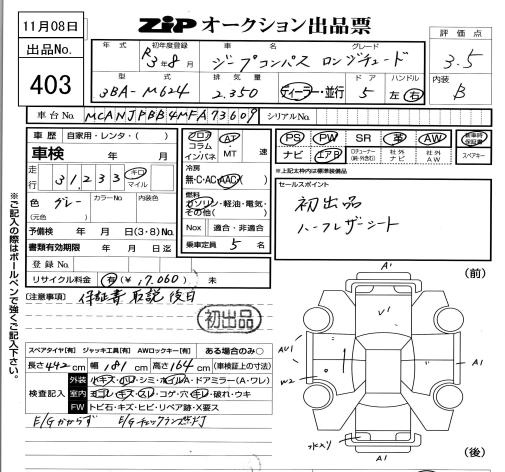 11月08日
出品No.
403
ZiP オークション出品票
評価点
3.5
内装
B
年式 初年度登録 車名 グレード
R3年8月 ジープコンパス ロンジチュード
型式 排気量 ドア ハンドル
3BA-M624 2.350 ディーラー・並行 5 左 右
車台No. MCANJPBB4MFA73609 シリアルNo.
車歴 自家用・レンタ・( )
車検 年 月
走行 31,233 キロ マイル
色 グレー カラーNo 内装色
(元色)
予備検 年 月 日(3・8)No.
書類有効期限 年 月 日迄
登録No.
リサイクル料金 有(¥17.060) 未
フロア コラム インパネ AT・MT 速
冷房
無・C・AC・AAC( )
燃料
ガソリン・軽油・電気・その他( )
Nox 適合・非適合
乗車定員 5 名
PS PW SR 革 AW
ナビ エアB 社外ナビ 社外AW
新車時保証書
スペアキー
※上記太枠内は標準装備品
セールスポイント
初出品
ハーフレザーシート
※ご記入の際はボールペンで強くご記入下さい。
[注意事項] 保証書 取説 後日
初出品
スペアタイヤ[有] ジャッキ工具[有] AWロックキー[有] ある場合のみ○
長さ442cm 幅181cm 高さ164cm (車検証上の寸法)
検査記入
外装 小キズ・小凹・シミ・ホイルA・ドアミラー(A・ワレ)
室内 ヨゴレ・キズ・スレ・コゲ・穴・キレ・破れ・ウキ
FW トビ石・キズ・ヒビ・リペア跡・X要ス
E/Gかからず E/Gチェックランプ
(前)
A1
V1
AU1
W2
A1
A1
(後)